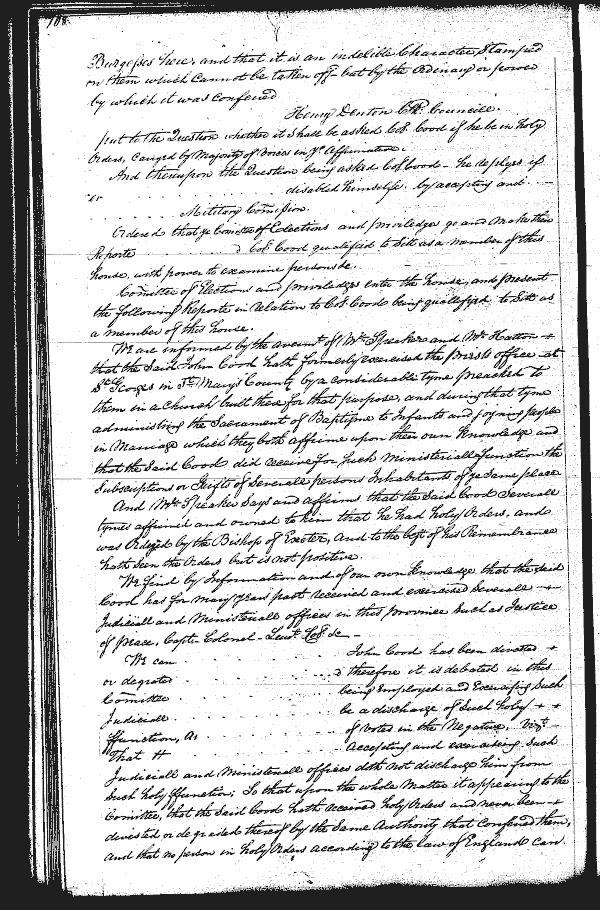 708.
Burgesses here, and that it is an indelible Character Stamped
on them which cannot be taken off but by the Ordinary or power
by which it was confered
Henry Denton Clk. Councill.
put to the Question whether it Shall be asked Col. Cood if he be in holy
Orders, Carryed by Majority of Voices in ye. Affirmative.
And thereupon the Question being asked Col Cood - he replyes if
or disabled himselfe by accepting and
Military Comission.
Ordered that ye Comittee of Elections and priviledges go and make their
Reporte Col. Cood qualified to Sitt as a member of this
house, with power to examine persons &c.
Comittee of Elections and priviledges enter the house, and present
the following Reporte in Relation to Col. Coods being quallifyed to Sitt as
a member of this house.
We are informed by the account of Mr. Speaker and Mr. Hatton
that the Said John Cood hath formerly exercised the priests office at
St. Georges in St. Mary's County by a considerable tyme preached to
them in a Church built there for that purpose, and during that tyme
administring the Sacrament of Baptisme to Infants and joyning people
in Marriage which they both affirme upon their own Knowledge and
that the Said Cood did receive for Such Ministeriall ffunction the
Subscriptions or Guifts of Severall persons Inhabitants of ye Same place
And Mr. Speaker Says and affirms that the Said Cood Severall
tymes affirmed and owned to him that he had holy Orders, and
was Ordeyned by the Bishop of Exeter, And to the best of his Remembrance
hath Seen the Orders but is not positive.
We find by Information and of our own Knowledge that the Said
Cood has for many Years past received and exercised Severall
Judiciall and Ministeriall offices in this Province Such as Justice
of peace, Capt. Colonel - Leiut. Col. &c
We can John Cood has been divested
or degrated therefore it is debated in this
Comittee being Employed and Exercising Such
Judiciall be a discharge of Such holy
ffunction, As of voted in the Negative, Vizt.
That accepting and exercising Such
Judiciall and Ministeriall offices doth not discharge him from
Such holy ffunction; So that upon the whole Matter it appearing to the
Comittee, that the Said Cood hath received holy Orders and never been
divested or degraded thereof by the Same Authority that Confered them,
and that no person in holy Orders according to the law of England can